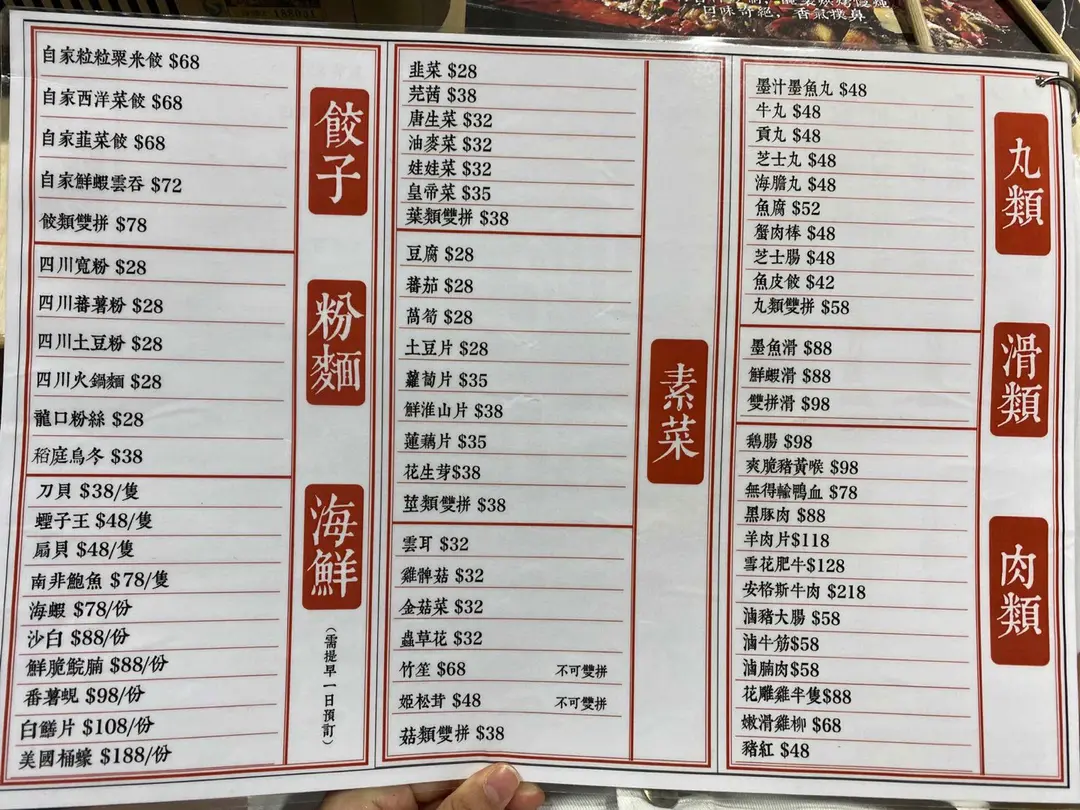 自家粒粒粟米餃 $68
自家西洋菜餃 $68
自家韮菜餃 $68
自家鮮蝦雲吞 $72
餃類雙拼 $78
餃子
四川寬粉 $28
四川蕃薯粉 $28
四川土豆粉 $28
四川火鍋麵 $28
龍口粉絲 $28
稻庭烏冬 $38
粉麵
刀貝 $38/隻
蟶子王 $48/隻
扇貝 $48/隻
南非鮑魚 $78/隻
海蝦 $78/份
沙白 $88/份
鮮脆鯇腩 $88/份
番薯蜆 $98/份
白鱔片 $108/份
美國桶蠔 $188/份
海鮮
（需提早一日預訂）
韭菜 $28
芫茜 $38
唐生菜 $32
油麥菜 $32
娃娃菜 $32
皇帝菜 $35
葉類雙拼 $38
豆腐 $28
蕃茄 $28
萵筍 $28
土豆片 $28
蘿蔔片 $35
鮮淮山片 $38
蓮藕片 $35
花生芽$38
莖類雙拼 $38
雲耳 $32
雞髀菇 $32
金菇菜 $32
蟲草花 $32
竹笙 $68 不可雙拼
姬松茸 $48 不可雙拼
菇類雙拼 $38
素菜
墨汁墨魚丸 $48
牛丸 $48
貢丸 $48
芝士丸 $48
海膽丸 $48
魚腐 $52
蟹肉棒 $48
芝士腸 $48
魚皮餃 $42
丸類雙拼 $58
丸類
墨魚滑 $88
鮮蝦滑 $88
雙拼滑 $98
滑類
鵝腸 $98
爽脆豬黃喉 $98
無得輸鴨血 $78
黑豚肉 $88
羊肉片$118
雪花肥牛$128
安格斯牛肉 $218
滷豬大腸 $58
滷牛筋$58
滷腩肉$58
花雕雞半隻$88
嫩滑雞柳 $68
豬紅 $48
肉類